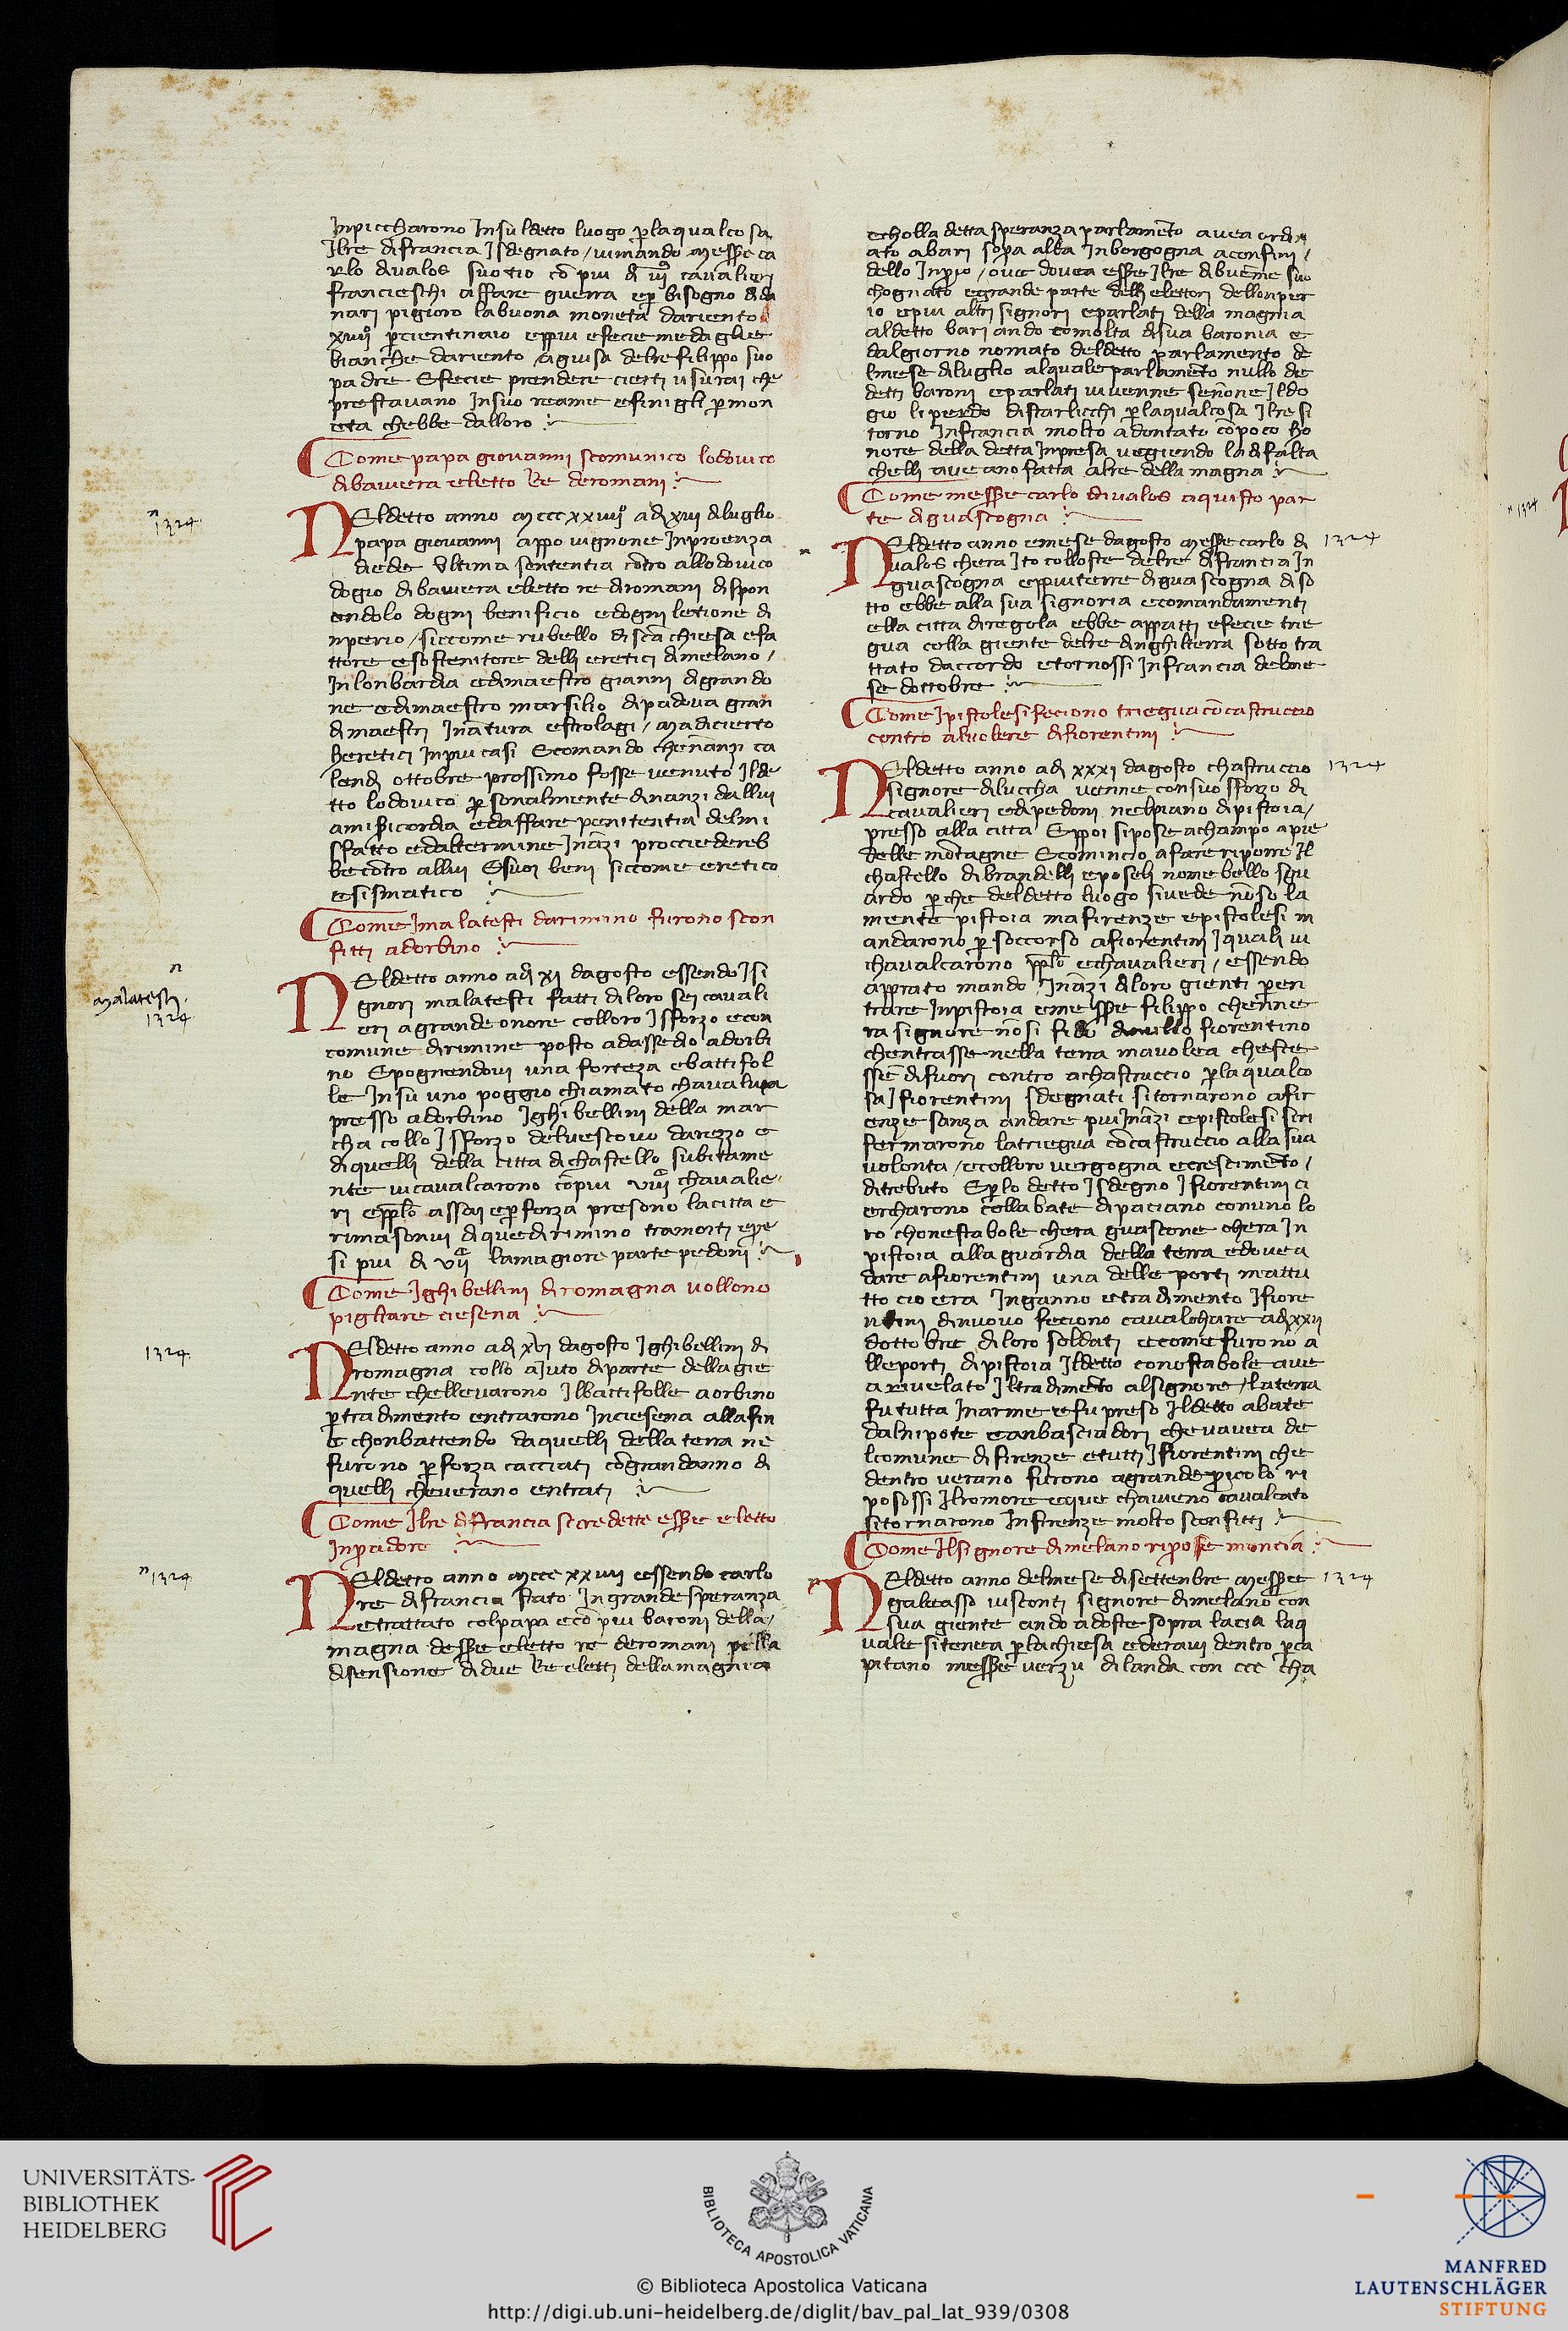 Inpiccharono Insùldetto luogo p̱laqualcosa
Ilre difrancia Isdegnato / vimando messer̄ ca
rlo divalos suotio cō piu dī vij̊ cavalieri
francieschi affare guerra ep̱ bisogno dida
nari pigioro labuona moneta dariento
xviiij̊ p̱cientinaio eppiu efecie medaglie
bianche dariento aguisa delre filippo suo
padre Efecie prendere cierti usurai che
prestavano Insuo reame efinigli p̱mon
eta chebbe dalloro
Come papa giovanni scomunico lodovico
dibaviera eletto Re deromani
NEldetto anno mcccxxiiij̊ adj xiij diluglio
papa giovanni appo vignone Inproenza
diede Ultima sententia cōtro allodovico
dogio dibaviera eletto re diromani dispon
endolo dogni benificio edogni letione di
nperio / siccome rubello di scā chiesa efa
ttore esostenitore delli eretici dimelano /
Inlonbardia edimaestro gianni digrando
ne edimaestro marsilio dipadova gran
dimaestri Inatura estrolagi / madicierto
heretici Inpiu casi Ecomando chenanzi ca
lendj ottobre prossimo fosse venuto Ilde
tto lodovico p̱sonalmente dinanzi dallui
amisicordia edaffare penitentia delmi
sfatto edaltermine Ināzi procciedereb
becōtro allui Esuoi beni siccome eretico
esismatico
Come Imalatesti darimino furono scon
fitti adorbino
NEldetto anno adj xj dagosto essendo Isi
gnori malatesti fatti diloro sei cavali
eri agrande onore colloro Isforzo econ
comune dirimine posto adassedio adorbi
no Epognendovi una forteza ebattifol
le Insù uno poggio chiamato chavalupa
presso adorbino Ighibellini della mar
cha collo Isforzo delvescovo darezzo e
diquelli della citta dichastello subitame
nte vicavalcarono cōpiu viiij̄ chavalie
ri epp̱lo assai ep̱forza presono lacitta e
rimasonvi diquedirimino tramorti epre
si piu di vij̄ lamagiore parte pedoni
Come Ighibellini diromagna vollono
pigliare ciesena
NEldetto anno adj xvj dagosto Ighibellini di
romagna collo aIuto diparte dellagie
nte chellevarono Ilbattifolle aorbino
p̱tradimento entrarono Inciesena allafin
e chonbattendo daquelli della terra ne
furono p̱forza cacciati cōgrandanno di
quelli cheverano entrati
Come Ilre difrancia sicredette esser̄ eletto
Inp̱adore
NEldetto anno mcccxxiiij essendo carlo
re difrancia stato Ingrande speranza
etrattato colpapa ecō piu baroni della /
magna desser̄ eletto re deromani pella
disensione didue Re eletti dellamagnia
echolla detta speranza parlamēto avea ordin
ato abari sopra alba Inborgogna aconfini /
dello Inp̱io / ove dovea esser̄ Ilre dibueme suo
chognato egrande parte delli elettori dellonper
io epiu altri signori eparlati della magnia
aldetto bari ando comolta disua baronia e
dalgiorno nomato deldetto parlamento de
lmese diluglio alquale parlamēto nullo de
detti baroni eparlati vivenne senōne Ildo
gio lipoldo distarlicchi p̱laqualcosa Ilresi
torno Infrancia molto adontato cōpoco ho
nore della detta Inpresa vegiendo ladifalta
chelli aveano fatta alre della magna
Come messer̄ carlo divalos aquisto par
te diguascogna
NEldetto anno emese dagosto messer̄ carlo di
valos chera Ito colloste delre difrancia In
guascogna eppiuterre diguascogna diso
tto ebbe alla sua signoria ecomandamenti
ella citta diregola ebbe appatti efecie trie
gua colla giente delre dinghilterra sotto tra
ttato daccordo etornossi Infrancia delme
se dottobre
Come Ipistolesi feciono triegua cōcastruccio
contro alvolere difiorentini
NEldetto anno adj xxxj dagosto chastruccio
signore diluccha venne consuo sforzo di
cavalieri edipedoni nelpiano dipistoia /
presso alla citta Eppoi sipose achampo apie
delle mōtagne Ecomincio afare riporre Il
chastello dibrandelli eposeli nome bello sgu
ardo p̱che deldetto luogo sivede nōsola
mente pistoia mafirenze epistolesi m
andarono p̱ soccorso afiorentini Iquali vi
chavalcarono pp̱lo echavalieri / essendo
apprato mando Ināzi diloro gienti p̱en
trare Inpistoia emesser̄ filippo chenne
ra signore nōsi fido divillo fiorentino
chentrasse nella terra mavolea cheste
ssē difuori contro achastruccio p̱laqualco
sa Ifiorentini sdegnati sitornarono afir
enze sanza andare piuInāzi epistolesi siri
fermarono latriegua cōcastruccio alla sua
volonta / ecolloro vergogna ecrescimēto /
ditrebuto Ep̱lo detto Isdegno Ifiorentini ci
ercharono collabate dipaciano comuno lo
ro chonestabole chera guascone chera In
pistoia alla guardia della terra edovea
dare afiorentini una delle porti mattu
tto cio era Inganno etradimento Ifiore
ntini dinuovo feciono cavalchare adjxxij
dottobre diloro soldati ecome furono a
lleporti dipistoia Ildetto conestabole ave
a rivelato Iltradimēto alsignore / laterra
fu tutta Inarme efu preso Ildetto abate
dalnipote eanbasciadori chevavea de
lcomune difirenze etutti Ifiorentini che
dentro verano furono agrande p̱icolo ri
posossi Ilromore eque chavieno cavalcato
sitornarono Infirenze molto sconfitti
Come Ilsignore dimelano ripose moncia
NEldetto anno delmese disettenbre messer̄
galeasso visconti signore dimelano con
sua giente ando adoste sopra lacia laq
uale sitenea p̱lachiesa ederavi dentro p̱ca
pitano messer̄ verzu dilanda con ccc cha
n
1324
n
malatesti.
1324
1324
n 1324
1324
1324
1324
n 1324
UNIVERSITÄTS-
BIBLIOTHEK
HEIDELBERG
BIBLIOTECA APOSTOLICA VATICANA
© Biblioteca Apostolica Vaticana
http://digi.ub.uni-heidelberg.de/diglit/bav_pal_lat_939/0308
MANFRED
LAUTENSCHLÄGER
STIFTUNG